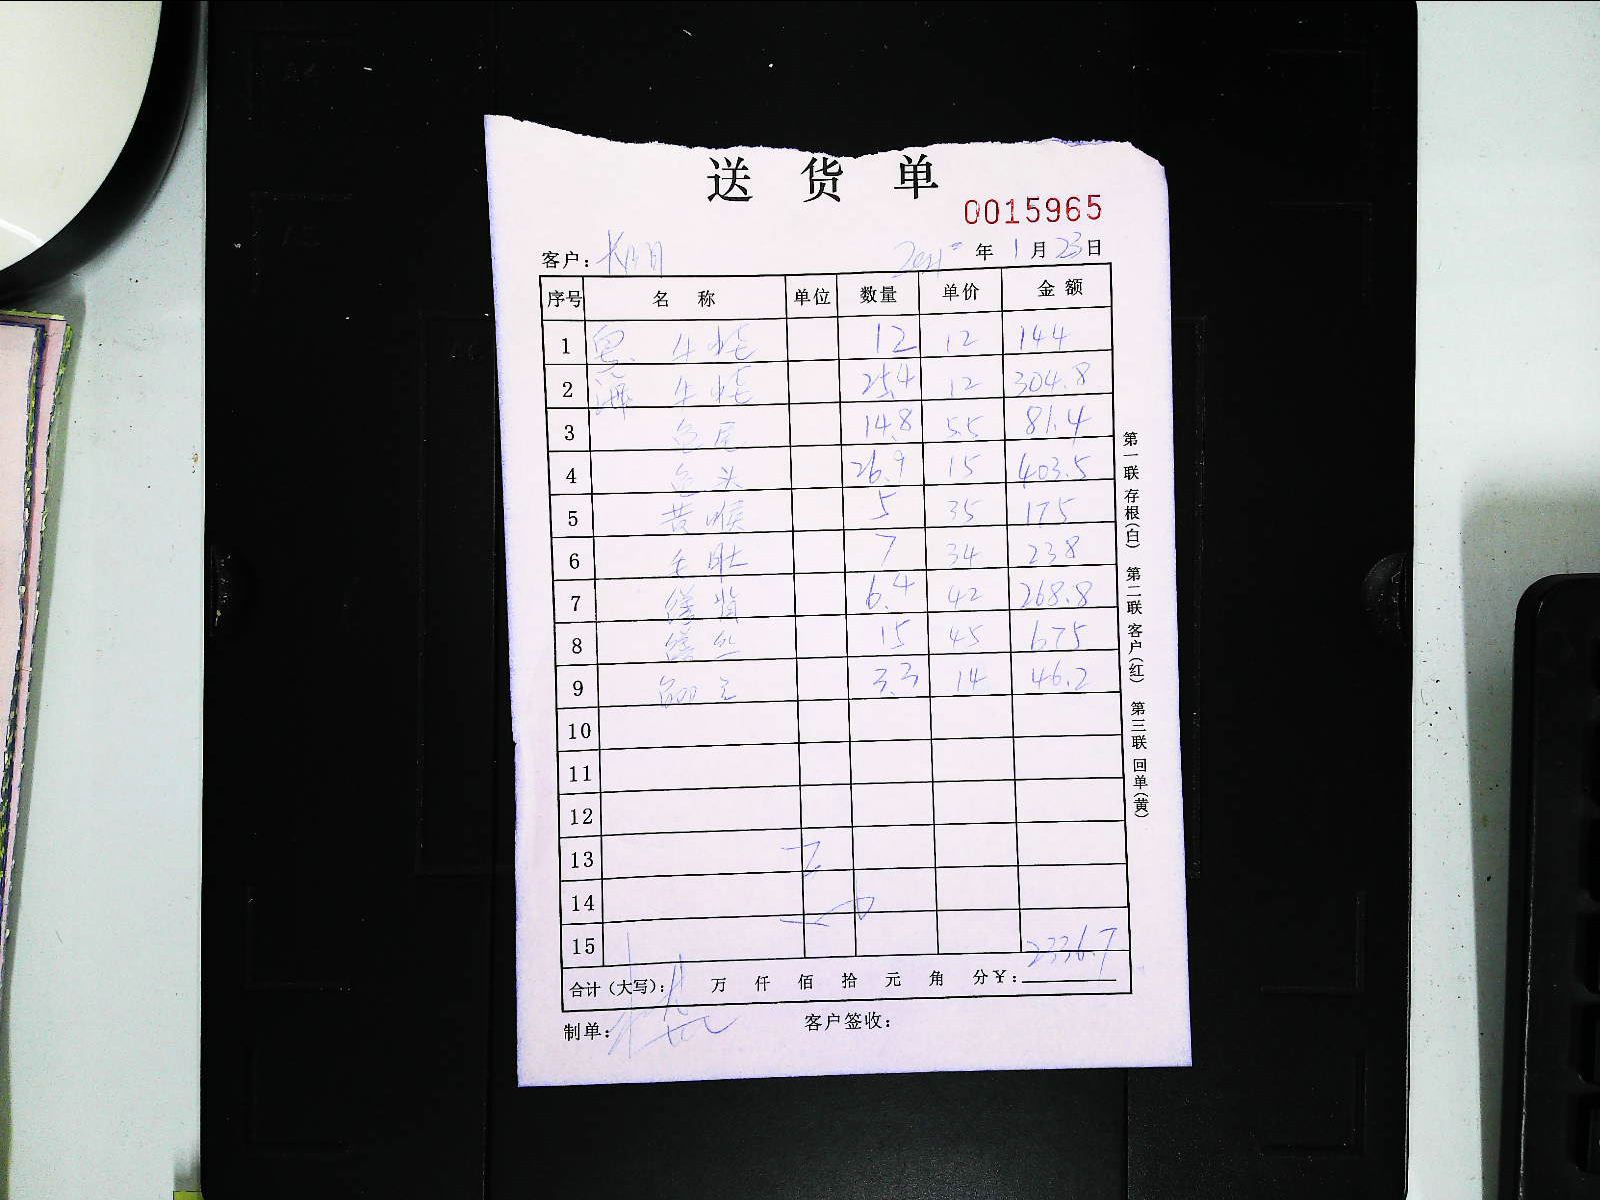 送货单
0015965
客户: 年 1 月 23 日
序号 名称 单位 数量 单价 金额
1 牛蛙 12 12 144
2 牛蛙 25.4 12 304.8
3 鱼尾 14.8 5.5 81.4
4 鱼头 26.9 15 403.5
5 黄喉 5 35 175
6 毛肚 7 34 238
7 6.4 42 268.8
8 鳝丝 15 45 675
9 3.3 14 46.2
10
11
12
13
14
15 2336.7
合计(大写): 万 仟 佰 拾 元 角 分 ¥:
制单: 客户签收:
第一联 存根(白) 第二联 客户(红) 第三联 回单(黄)